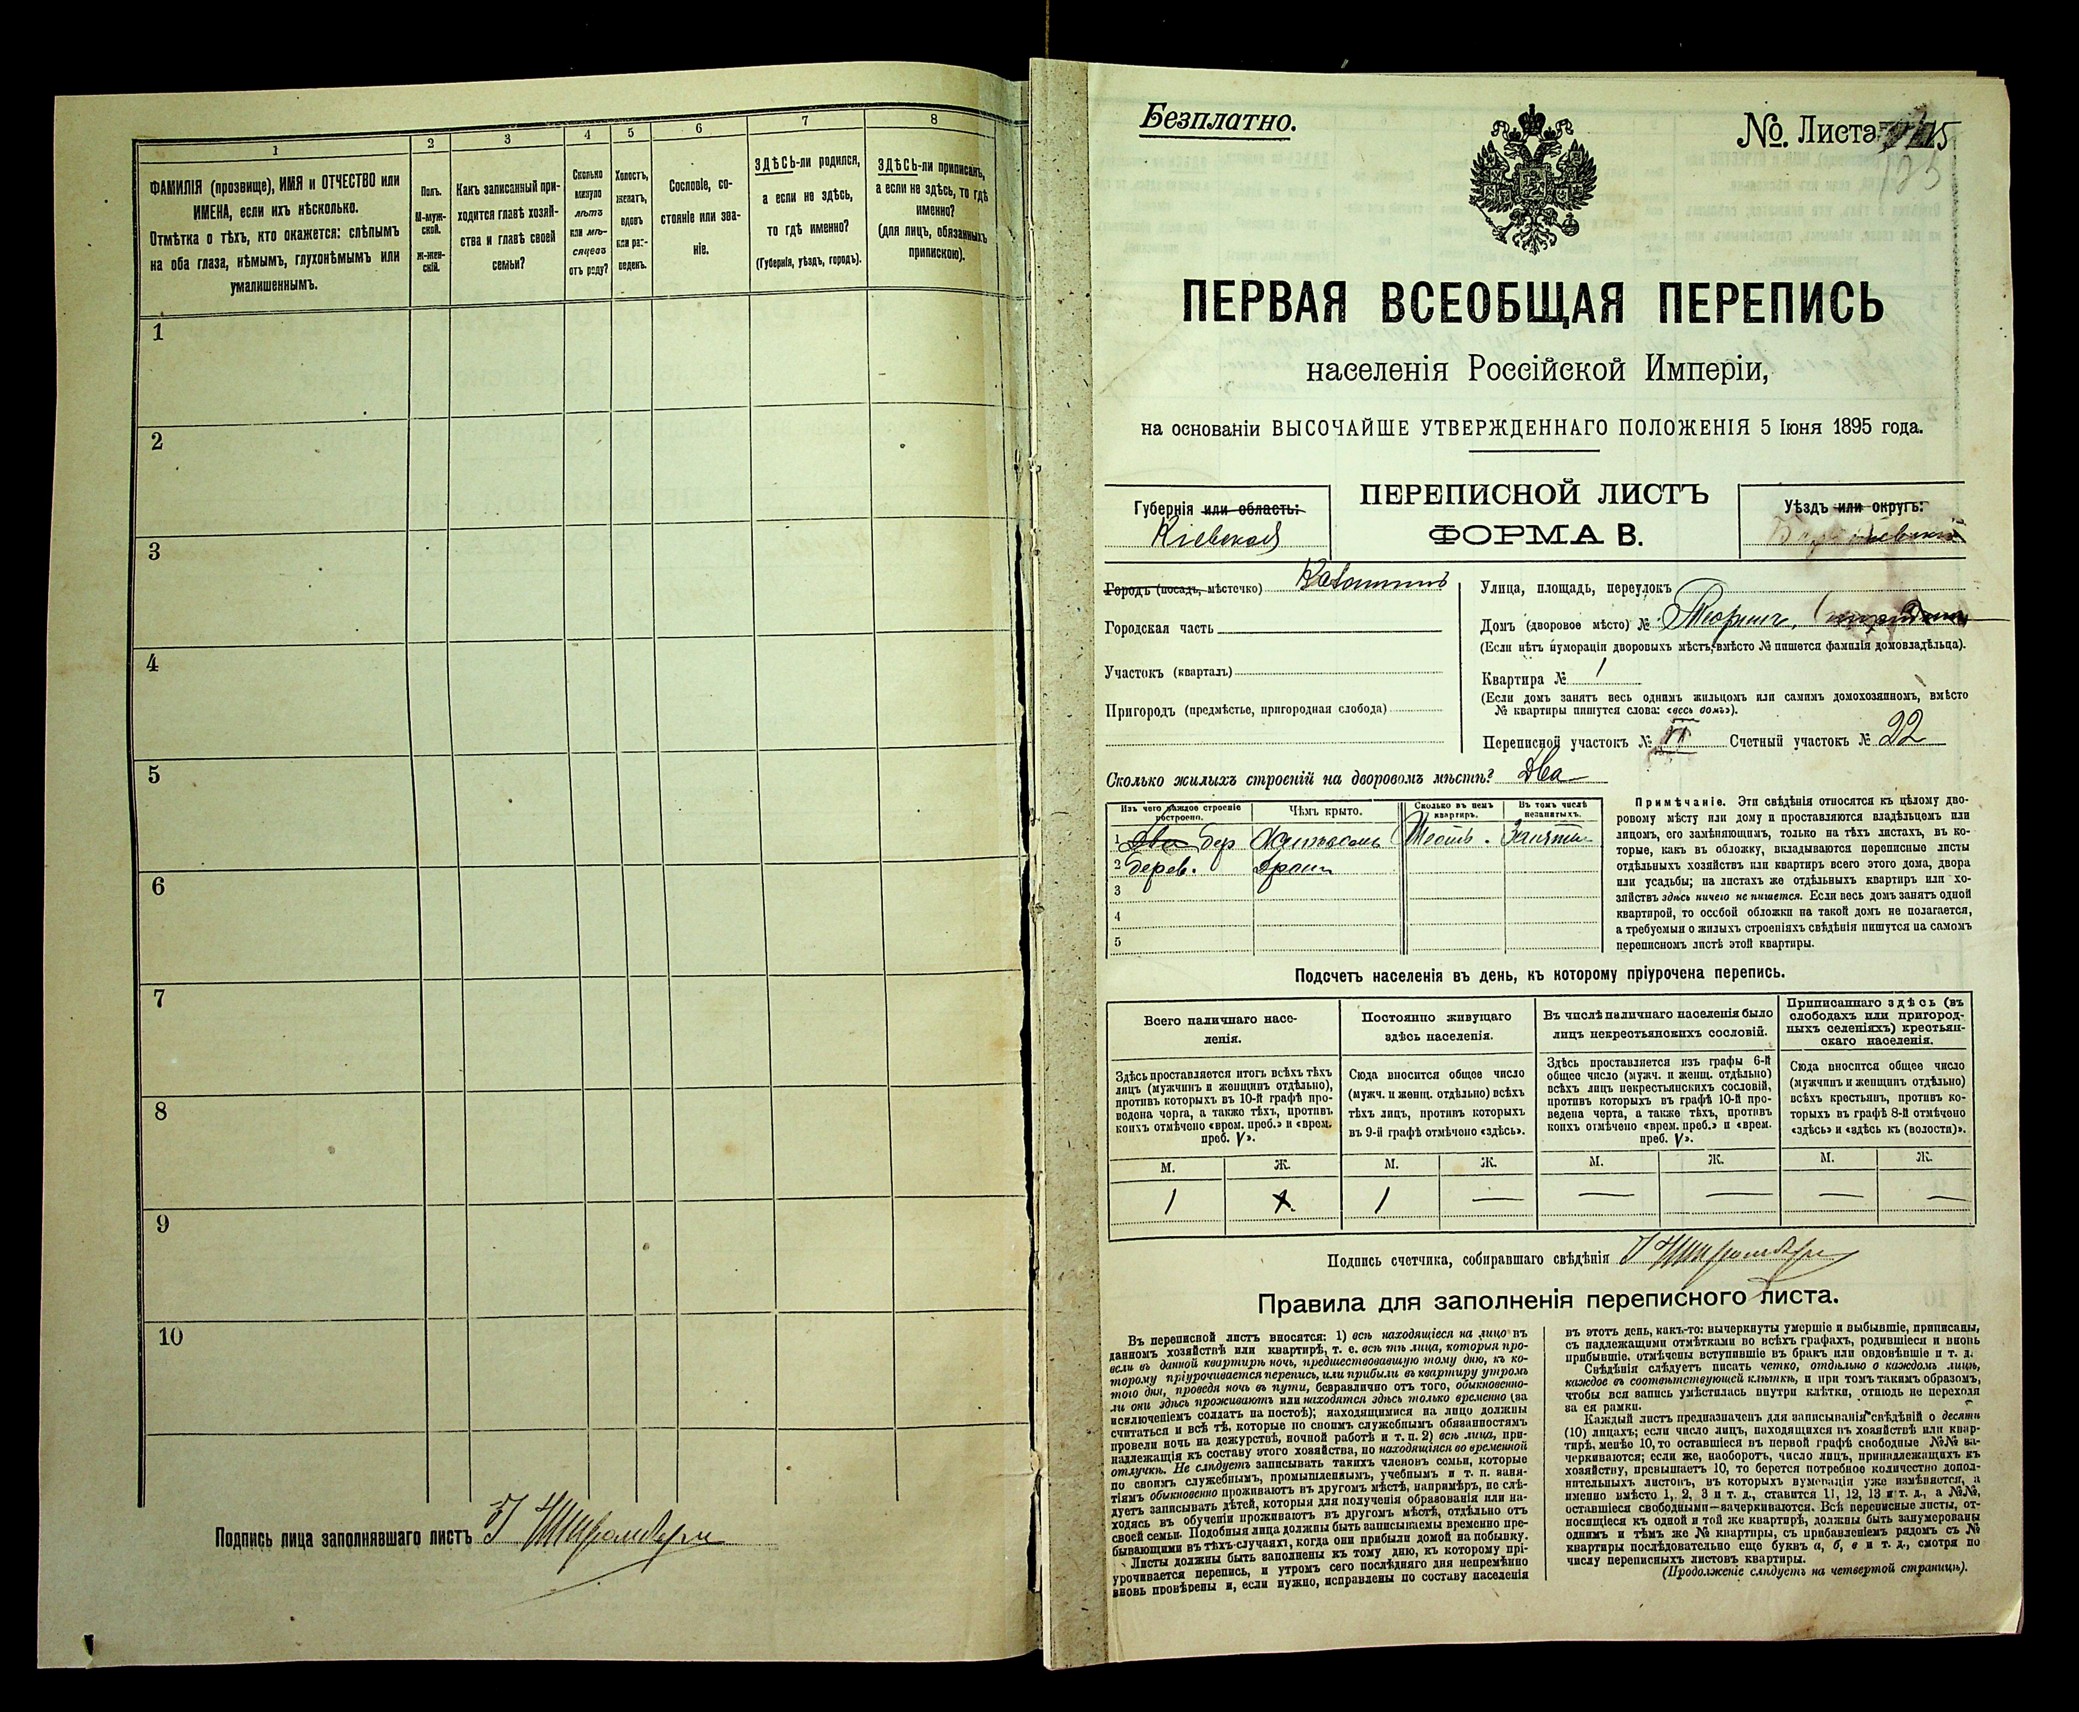 1
2
3
4
5
6
7
8
ФАМИЛІЯ (прозвище), ИМЯ и ОТЧЕСТВО или
ИМЕНА, если ихъ нѣсколько.
Отмѣтка о тѣхъ, кто окажется: слѣпымъ
на оба глаза, нѣмымъ, глухонѣмымъ или
умалишеннымъ.
Полъ.
М-муж-
ской.
Ж-жен-
скій.
Какъ записанный при-
ходится главѣ хозяй-
ства и главѣ своей
семьи?
Сколько
минуло
лѣтъ
или мѣ-
сяцевъ
отъ роду?
Холостъ,
женатъ,
вдовъ
или раз-
веденъ.
Сословіе, со-
стояніе или зва-
ніе.
ЗДѢСЬ-ли родился,
а если не здѣсь,
то гдѣ именно?
(Губернія, уѣздъ, городъ).
ЗДѢСЬ-ли приписанъ,
а если не здѣсь, то гдѣ
именно?
(для лицъ, обязанныхъ
припискою).
1
2
3
4
5
6
7
8
9
10
Подпись лица заполнявшаго листъ
Безплатно.
№ Листа
ПЕРВАЯ ВСЕОБЩАЯ ПЕРЕПИСЬ
населенія Россійской Имперіи,
на основаніи ВЫСОЧАЙШЕ УТВЕРЖДЕННАГО ПОЛОЖЕНІЯ 5 Іюня 1895 года.
ПЕРЕПИСНОЙ ЛИСТЪ
ФОРМА В.
Губернія или область:
Кіевская
Уѣздъ или округъ:
Городъ (посадъ, мѣстечко)
Городская часть
Участокъ (кварталъ)
Пригородъ (предмѣстье, пригородная слобода)
Улица, площадь, переулокъ
Домъ (дворовое мѣсто) №
(Если нѣтъ нумераціи дворовыхъ мѣстъ, вмѣсто № пишется фамилія домовладѣльца).
Квартира № 1
(Если домъ занятъ весь однимъ жильцомъ или самимъ домохозяиномъ, вмѣсто
№ квартиры пишутся слова: «весь домъ»).
Переписной участокъ № VI Счетный участокъ № 22
Сколько жилыхъ строеній на дворовомъ мѣстѣ? Два
Изъ чего каждое строеніе
построено.
Чѣмъ крыто.
Сколько въ немъ
квартиръ.
Въ томъ числѣ
незанятыхъ.
1 Два дер
2 дерев.
3
4
5
Примѣчаніе. Эти свѣдѣнія относятся къ цѣлому дво-
ровому мѣсту или дому и проставляются владѣльцемъ или
лицомъ, его замѣняющимъ, только на тѣхъ листахъ, въ ко-
торые, какъ въ обложку, вкладываются переписные листы
отдѣльныхъ хозяйствъ или квартиръ всего этого дома, двора
или усадьбы; на листахъ же отдѣльныхъ квартиръ или хо-
зяйствъ здѣсь ничего не пишется. Если весь домъ занятъ одной
квартирой, то особой обложки на такой домъ не полагается,
а требуемыя о жилыхъ строеніяхъ свѣдѣнія пишутся на самомъ
переписномъ листѣ этой квартиры.
Подсчетъ населенія въ день, къ которому пріурочена перепись.
Всего наличнаго насе-
ленія.
Здѣсь проставляется итогъ всѣхъ тѣхъ
лицъ (мужчинъ и женщинъ отдѣльно),
противъ которыхъ въ 10-й графѣ про-
ведена черта, а также тѣхъ, противъ
коихъ отмѣчено «врем. преб.» и «врем.
преб. V».
Постоянно живущаго
здѣсь населенія.
Сюда вносится общее число
(мужч. и женщ. отдѣльно) всѣхъ
тѣхъ лицъ, противъ которыхъ
въ 9-й графѣ отмѣчено «здѣсь».
Въ числѣ наличнаго населенія было
лицъ некрестьянскихъ сословій.
Здѣсь проставляется изъ графы 6-й
общее число (мужч. и женщ. отдѣльно)
всѣхъ лицъ некрестьянскихъ сословій,
противъ которыхъ въ графѣ 10-й про-
ведена черта, а также тѣхъ, противъ
коихъ отмѣчено «врем. преб.» и «врем.
преб. V».
Приписаннаго здѣсь (въ
слободахъ или пригород-
ныхъ селеніяхъ) крестьян-
скаго населенія.
Сюда вносится общее число
(мужчинъ и женщинъ отдѣльно)
всѣхъ крестьянъ, противъ ко-
торыхъ въ графѣ 8-й отмѣчено
«здѣсь» и «здѣсь къ (волости)».
М. Ж. М. Ж. М. Ж. М. Ж.
1 1 — — — — —
Подпись счетчика, собиравшаго свѣдѣнія
Правила для заполненія переписного листа.
Въ переписной листъ вносятся: 1) всѣ находящіеся на лицо въ
данномъ хозяйствѣ или квартирѣ, т. е. всѣ тѣ лица, которыя про-
вели въ данной квартирѣ ночь, предшествовавшую тому дню, къ ко-
торому пріурочивается перепись, или прибыли въ квартиру утромъ
того дня, проведя ночь въ пути, безразлично отъ того, обыкновенно-
ли они здѣсь проживаютъ или находятся здѣсь только временно (за
исключеніемъ солдатъ на постоѣ); находящимися на лицо должны
считаться и всѣ тѣ, которые по своимъ служебнымъ обязанностямъ
провели ночь на дежурствѣ, ночной работѣ и т. п. 2) всѣ лица, при-
надлежащія къ составу этого хозяйства, но находящіяся во временной
отлучкѣ. Не слѣдуетъ записывать такихъ членовъ семьи, которые
по своимъ служебнымъ, промышленнымъ, учебнымъ и т. п. заня-
тіямъ обыкновенно проживаютъ въ другомъ мѣстѣ, напримѣръ, не слѣ-
дуетъ записывать дѣтей, которыя для полученія образованія или на-
ходясь въ обученіи проживаютъ въ другомъ мѣстѣ, отдѣльно отъ
своей семьи. Подобныя лица должны быть записываемы временно пре-
бывающими въ тѣхъ случаяхъ, когда они прибыли домой на побывку.
Листы должны быть заполнены къ тому дню, къ которому прі-
урочивается перепись, и утромъ сего послѣдняго дня непремѣнно
вновь провѣрены и, если нужно, исправлены по составу населенія
въ этотъ день, какъ-то: вычеркнуты умершіе и выбывшіе, приписаны,
съ надлежащими отмѣтками во всѣхъ графахъ, родившіеся и вновь
прибывшіе, отмѣчены вступившіе въ бракъ или овдовѣвшіе и т. д.
Свѣдѣнія слѣдуетъ писать четко, отдѣльно о каждомъ лицѣ,
каждое въ соотвѣтствующей клѣткѣ, и при томъ такимъ образомъ,
чтобы вся запись умѣстилась внутри клѣтки, отнюдь не переходя
за ея рамки.
Каждый листъ предназначенъ для записыванія свѣдѣній о десяти
(10) лицахъ; если число лицъ, находящихся въ хозяйствѣ или квар-
тирѣ, менѣе 10, то оставшіеся въ первой графѣ свободные №№ за-
черкиваются; если же, наоборотъ, число лицъ, принадлежащихъ къ
хозяйству, превышаетъ 10, то берется потребное количество допол-
нительныхъ листовъ, въ которыхъ нумерація уже измѣняется, а
именно вмѣсто 1, 2, 3 и т. д., ставится 11, 12, 13 и т. д., а №№,
оставшіеся свободными—зачеркиваются. Всѣ переписные листы, от-
носящіеся къ одной и той же квартирѣ, должны быть занумерованы
однимъ и тѣмъ же № квартиры, съ прибавленіемъ рядомъ съ №
квартиры послѣдовательно еще буквъ а, б, в и т. д., смотря по
числу переписныхъ листовъ квартиры.
(Продолженіе слѣдуетъ на четвертой страницѣ).